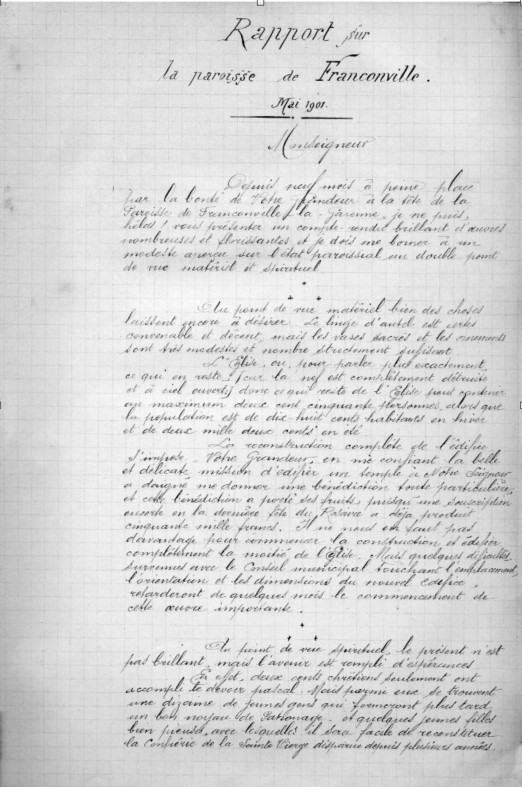 Rapport sur
la paroisse de Franconville.
Mai 1901.
Monseigneur
Depuis neuf mois à peine placé
par la bonté de Votre Grandeur à la tête de la
Paroisse de Franconville la Garenne, je ne puis,
hélas! vous présenter un compte-rendu brillant d'œuvres
nombreuses et florissantes et je dois me borner à un
modeste aperçu sur l'état paroissial au double point
de vue matériel et spirituel
Au point de vue matériel bien des choses
laissent encore à désirer. Le linge d'autel est certes
convenable et décent, mais les vases sacrés et les ornements
sont très modestes et nombre strictement suffisant.
L'Eglise, ou pour parler plus exactement,
ce qui en reste (car la nef est complètement détruite
et à ciel ouvert) donc ce qui reste de l'Eglise peut contenir
au maximum deux cent cinquante personnes, alors que
la population est de dix huit cents habitants en hiver
et de deux mille deux cents en été
La reconstruction complète de l'édifice
s'impose. Votre Grandeur, en me confiant la belle
et délicate mission d'édifier un temple à Notre Seigneur
a daigné me donner une bénédiction toute particulière,
et cette bénédiction a porté ses fruits puisqu'une souscription
ouverte en la dernière fête du Rosaire a déjà produit
cinquante mille francs. Il ne nous en faut pas
davantage pour commencer la construction et édifier
complètement la moitié de l'Eglise. Mais quelques difficultés,
survenues avec le Conseil municipal touchant l'emplacement,
l'orientation et les dimensions du nouvel édifice,
retarderont de quelques mois le commencement de
cette œuvre importante.
Au point de vue spirituel le présent n'est
pas brillant, mais l'avenir est rempli d'espérances
En effet, deux cents chrétiens seulement ont
accompli le devoir pascal. Mais parmi eux se trouvent
une dizaine de jeunes gens qui formeront plus tard
un bon noyau de Patronage, et quelques jeunes filles
bien pieuses, avec lesquelles il sera facile de reconstituer
la Confrérie de la Sainte Vierge disparue depuis plusieurs années.